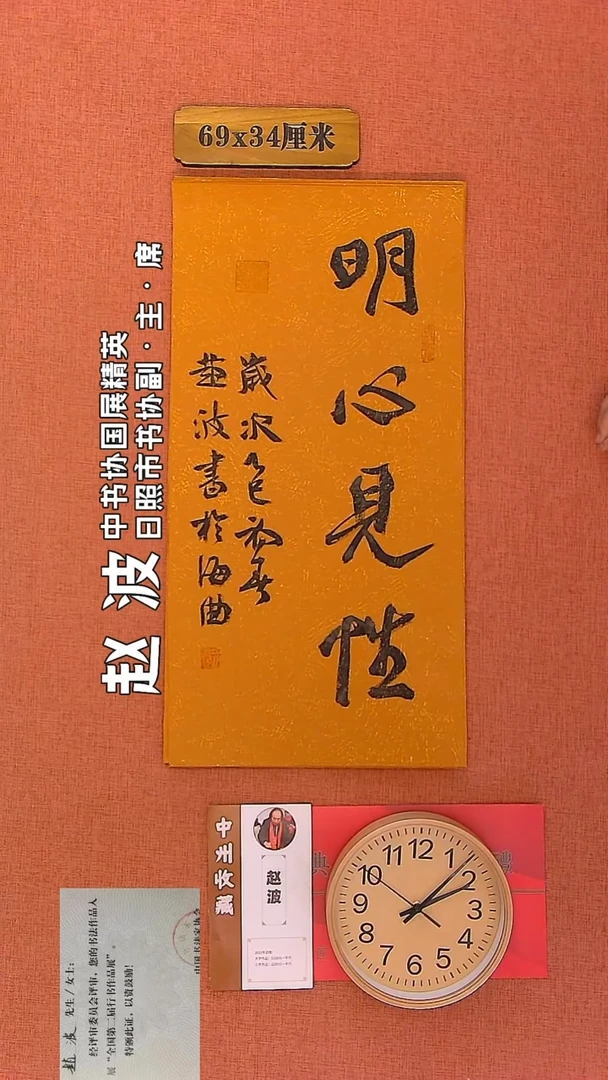 69x34厘米
明心见性
岁次乙巳初春
赵波书于海曲
赵 波
中书协国展精英
日照市书协副·主·席
中书协
赵波
12
1
2
3
4
5
6
7
8
9
10
11
赵波 先生/女士:
经评审委员会评审,您的书法作品入
展“全国第二届行书作品展”。
特颁此证,以资鼓励!
中国书法家协会